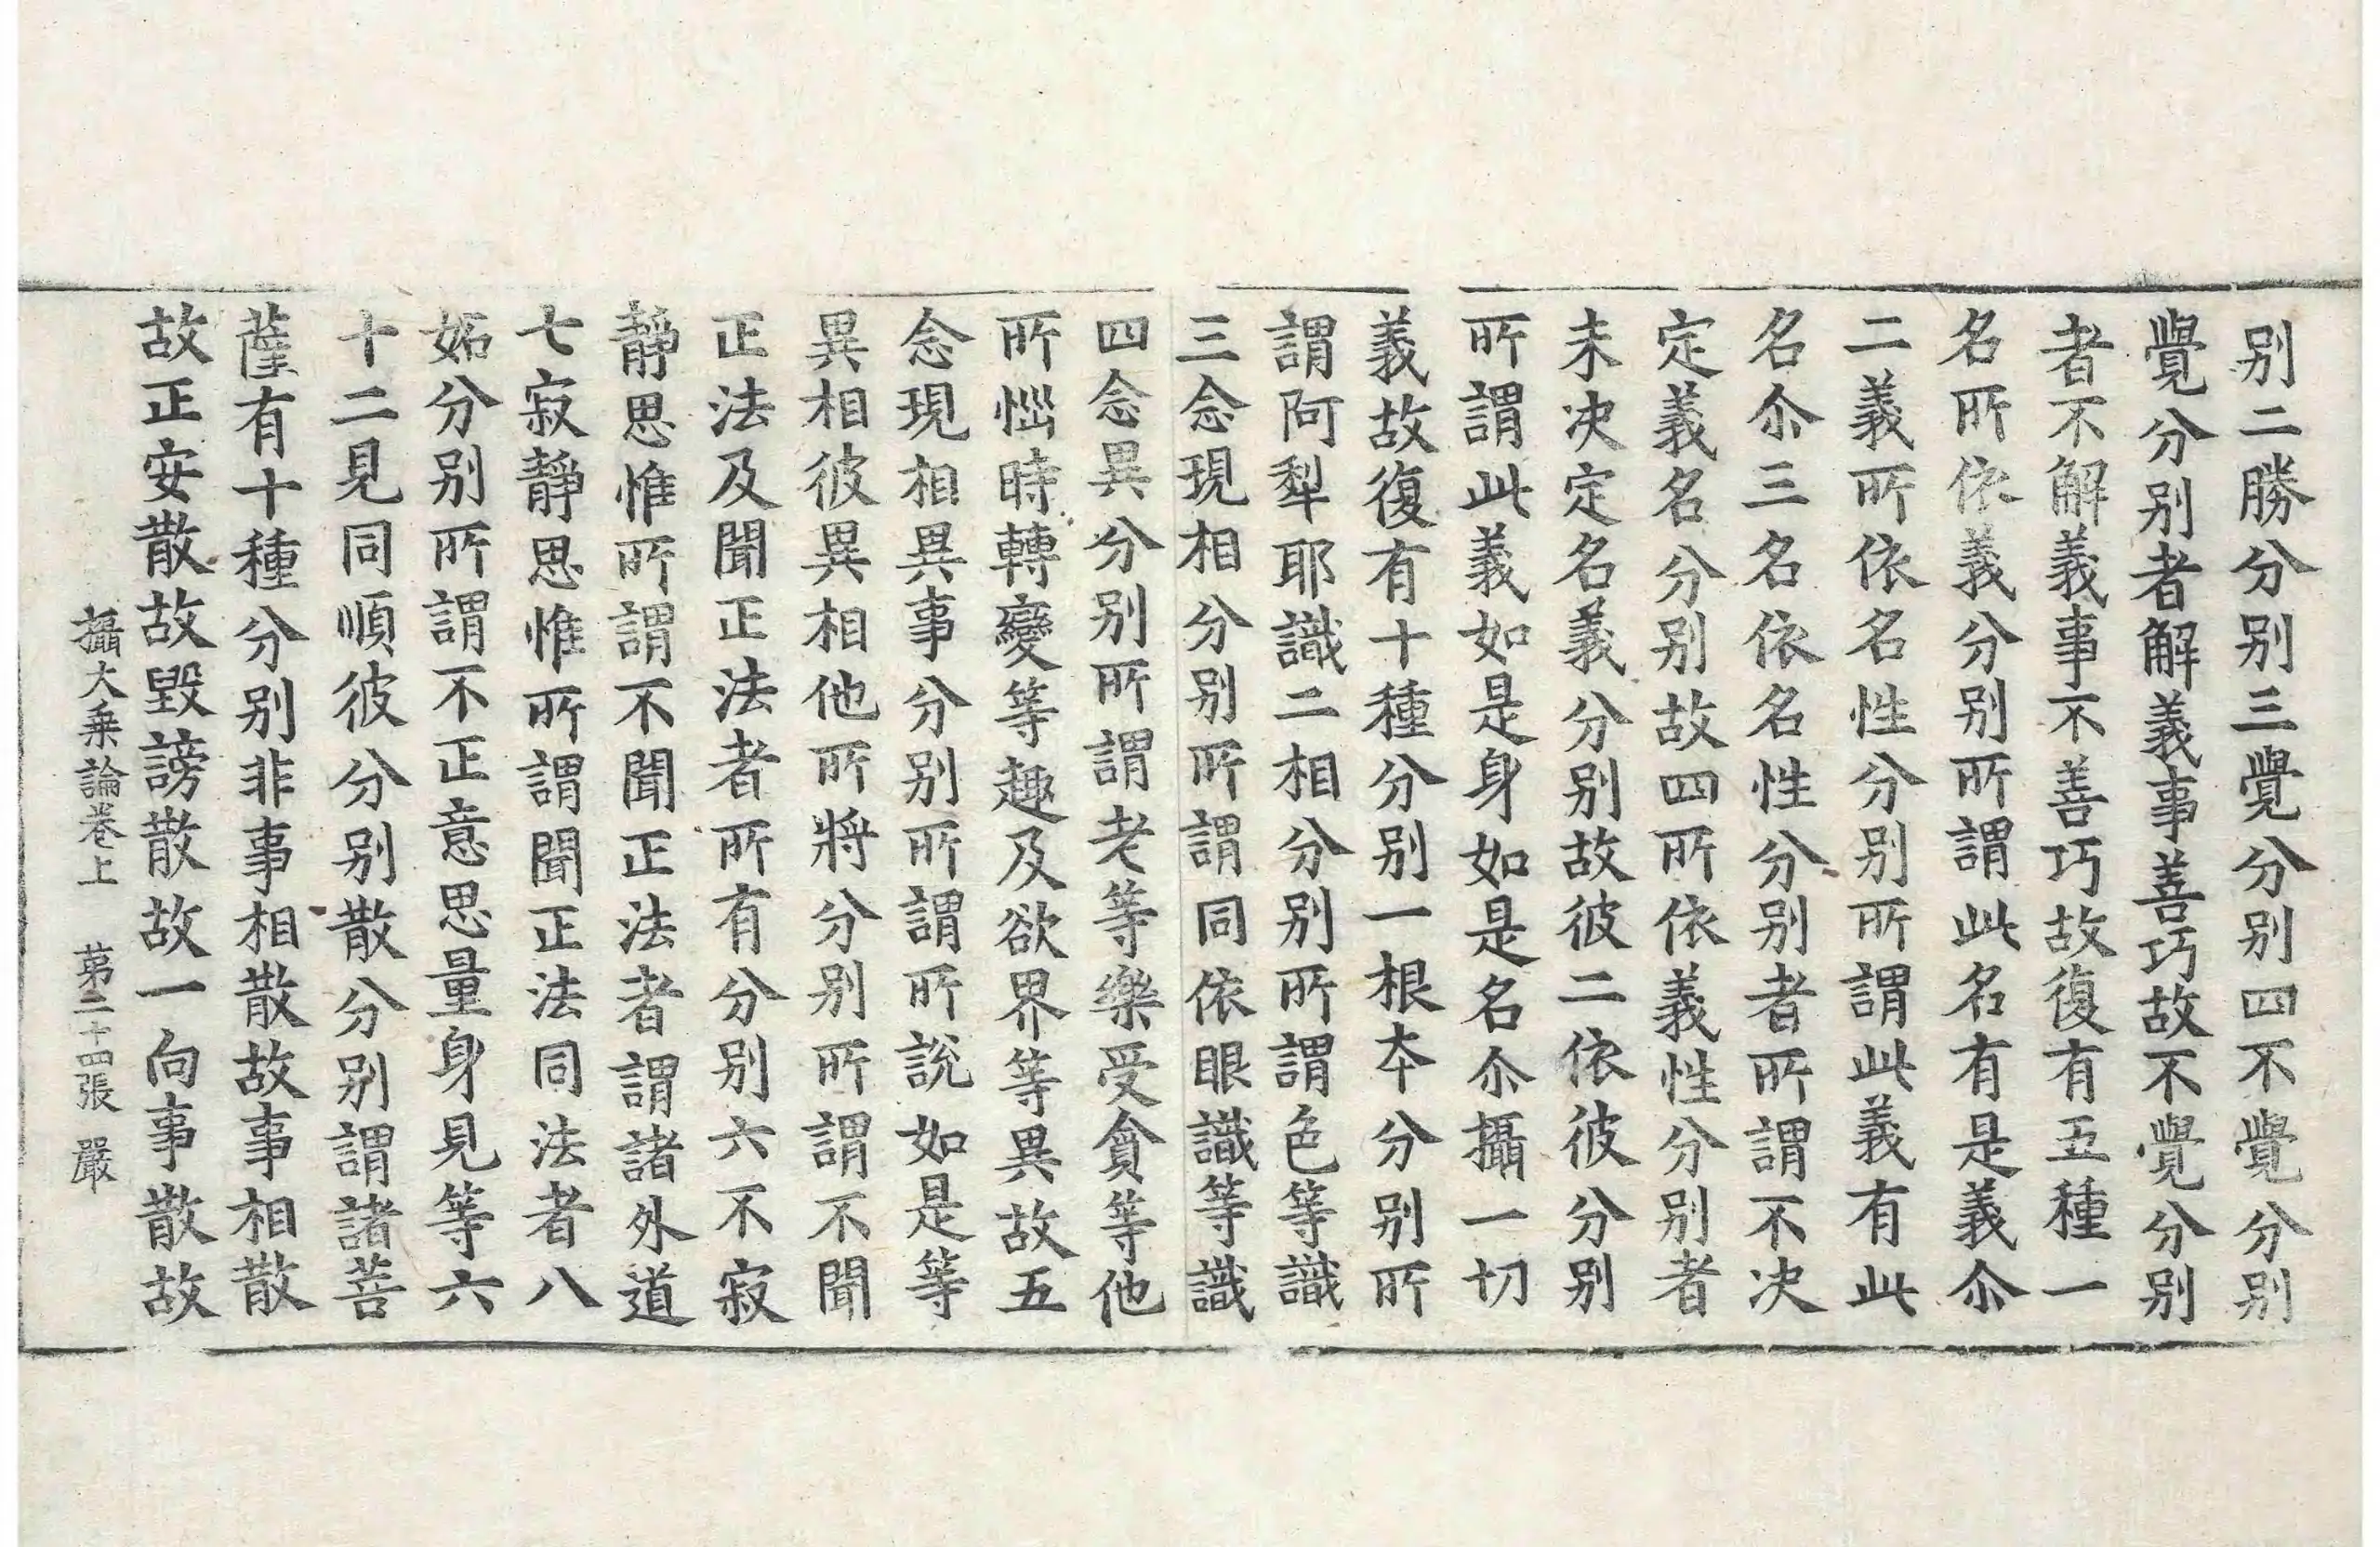 别二勝分别三覺分别四不覺分别
覺分别者解義事善巧故不覺分别
者不解義事不善巧故復有五種一
名所依義分别所謂此名有是義尒
二義所依名性分别所謂此義有此
名尒三名依名性分别者所謂不决
定義名分别故四所依義性分别者
未决定名義分别故彼二依彼分别
所謂此義如是身如是名尒攝一切
義故復有十種分别一根夲分别所
謂阿犁耶識二相分别所謂色等識
三念現相分别所謂同依眼識等識
四念異分别所謂老等樂受貪等他
所惱時轉變等趣及欲界等異故五
念現相異事分别所謂所說如是等
異相彼異相他所將分别所謂不聞
正法及聞正法者所有分别六不寂
靜思惟所謂不聞正法者謂諸外道
七寂靜思惟所謂聞正法同法者八
妬分别所謂不正意思量身見等六
十二見同順彼分别散分别謂諸菩
薩有十種分别非事相散故事相散
故正安散故毀謗散故一向事散故
攝大乗論卷上 苐二十四張 嚴